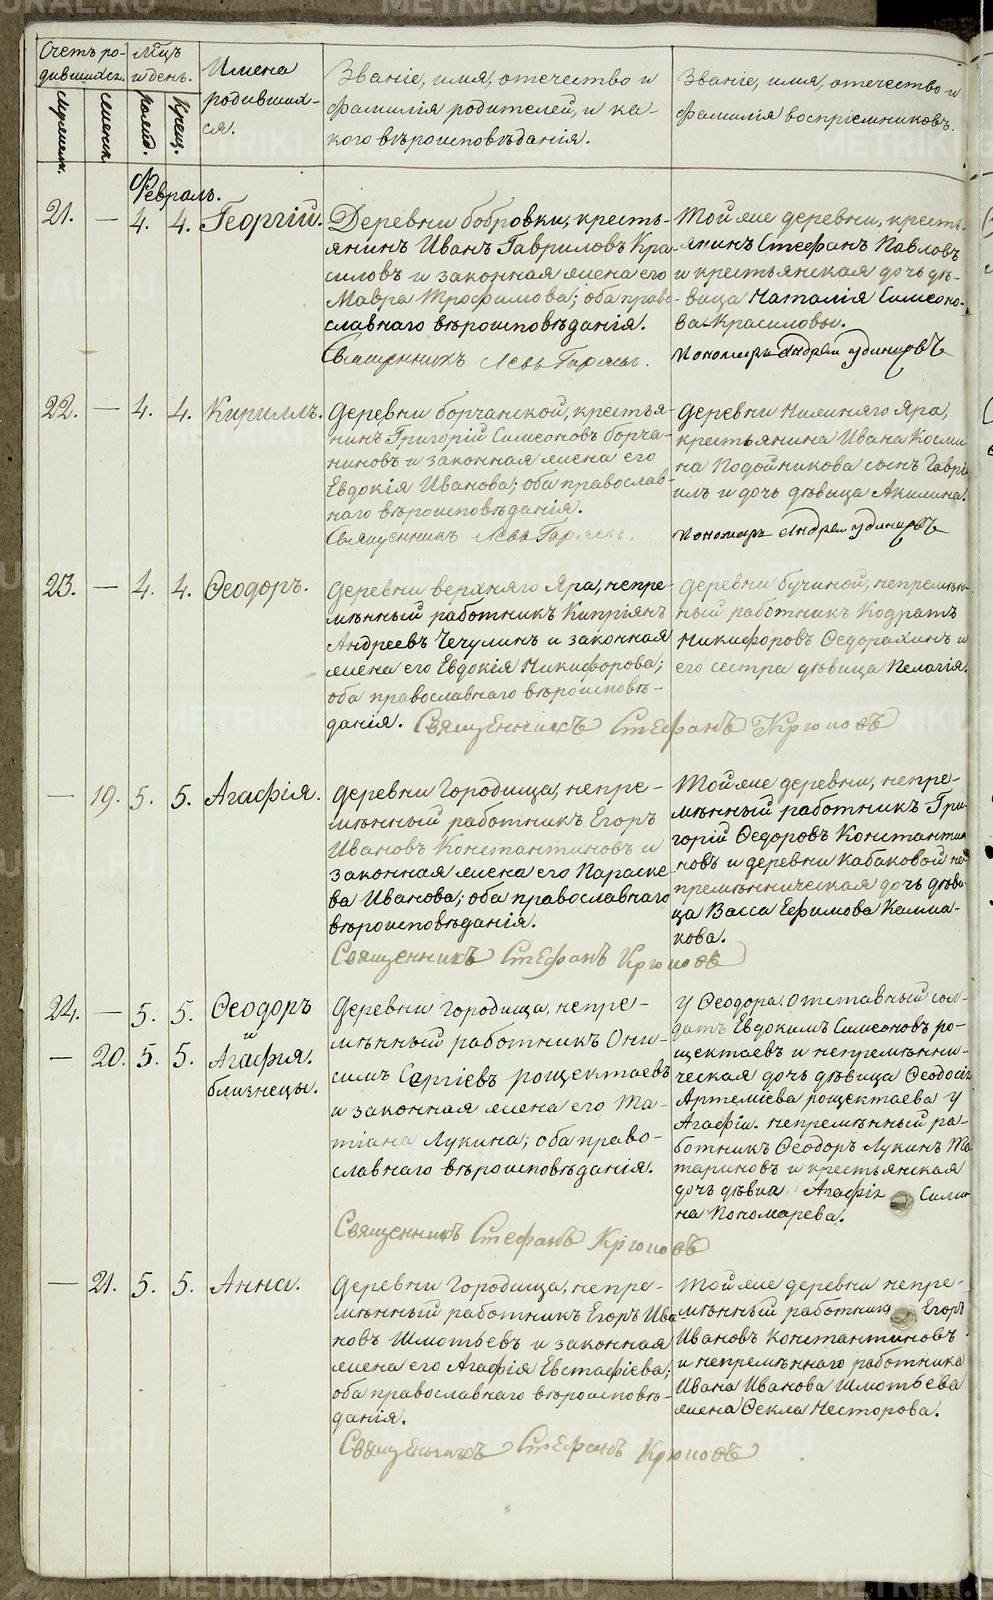 Счетъ ро-
дившихся.
Мѣцъ
и день.
Имена
родивших-
ся.
Званіе, имя, отечество и
фамилія родителей, и ка-
кого вѣроисповѣданія.
Званіе, имя, отечество и
фамилія воспріемниковъ.
Мужеск.
Женск.
рожд.
Крещ.
Февраль.
21. — 4. 4. Георгій.
Деревни бобровки, кресть-
янинъ Иванъ Гавриловъ Кра-
силовъ и законная жена его
Мавра Трофимова; оба право-
славнаго вѣроисповѣданія.
Священникъ Левъ
Тойже деревни, кресть-
янинъ Стефанъ Павловъ
и крестьянская дочь дѣ-
вица Наталія Симеоно-
ва Красиловы.
Пономарь Андрей Удинцовъ
22. — 4. 4. Кириллъ.
Деревни борчанской, крестья-
нинъ Григорій Симеоновъ борча-
ниновъ и законная жена его
Евдокія Иванова; оба православ-
наго вѣроисповѣданія.
Священникъ Левъ
Деревни Нижняго Яра,
крестьянина Ивана Косми-
на Подойникова сынъ Гаврі-
илъ и дочь дѣвица Акилина.
Пономарь Андрей Удинцовъ
23. — 4. 4. Ѳеодоръ.
Деревни верхняго Яра, непре-
мѣнный работникъ Кипріянъ
Андреевъ Чечулинъ и законная
жена его Евдокія Никифорова;
оба православнаго вѣроисповѣ-
данія. Священникъ Стефанъ Крюковъ
Деревни бучиной, непремѣн-
ный работникъ Кодратъ
Никифоровъ Ѳедорахинъ и
его сестра дѣвица Пелагія.
— 19. 5. 5. Агафія.
Деревни Городища, непре-
мѣнный работникъ Егоръ
Ивановъ Константиновъ и
законная жена его Параске-
ва Иванова; оба православнаго
вѣроисповѣданія.
Священникъ Стефанъ Крюковъ
Тойже деревни, непре-
мѣнный работникъ Гри-
горій Ѳедоровъ Константи-
новъ и деревни Кабаковой не-
премѣнническая дочь дѣви-
ца Васса Ефимова Калма-
кова.
24. — 5. 5. Ѳеодоръ
и
— 20. 5. 5. Агафія.
близнецы.
Деревни Городища, непре-
мѣнный работникъ Они-
симъ Сергіевъ рощектаевъ
и законная жена его Та-
тіана Лукина; оба право-
славнаго вѣроисповѣданія.
Священникъ Стефанъ Крюковъ
У Ѳеодора. Отставный сол-
датъ Евдокимъ Симеоновъ ро-
щектаевъ и непремѣнни-
ческая дочь дѣвица Ѳеодосія
Артеміева рощектаева У
Агафіи. непремѣнный ра-
ботникъ Ѳеодоръ Лукинъ Та-
тариновъ и крестьянская
дочь дѣвица Агафія Сили-
на Пономарева.
— 21. 5. 5. Анна.
Деревни Городища, непре-
мѣнный работникъ Егоръ Ива-
новъ Шмотьевъ и законная
жена его Агафія Евстафіева;
оба православнаго вѣроисповѣ-
данія.
Священникъ Стефанъ Крюковъ
Тойже деревни непре-
мѣнный работникъ Егоръ
Ивановъ Константиновъ
и непремѣннаго работника
Ивана Иванова Шмотьева
жена Ѳекла Несторова.
METRIKI.GASU-URAL.RU